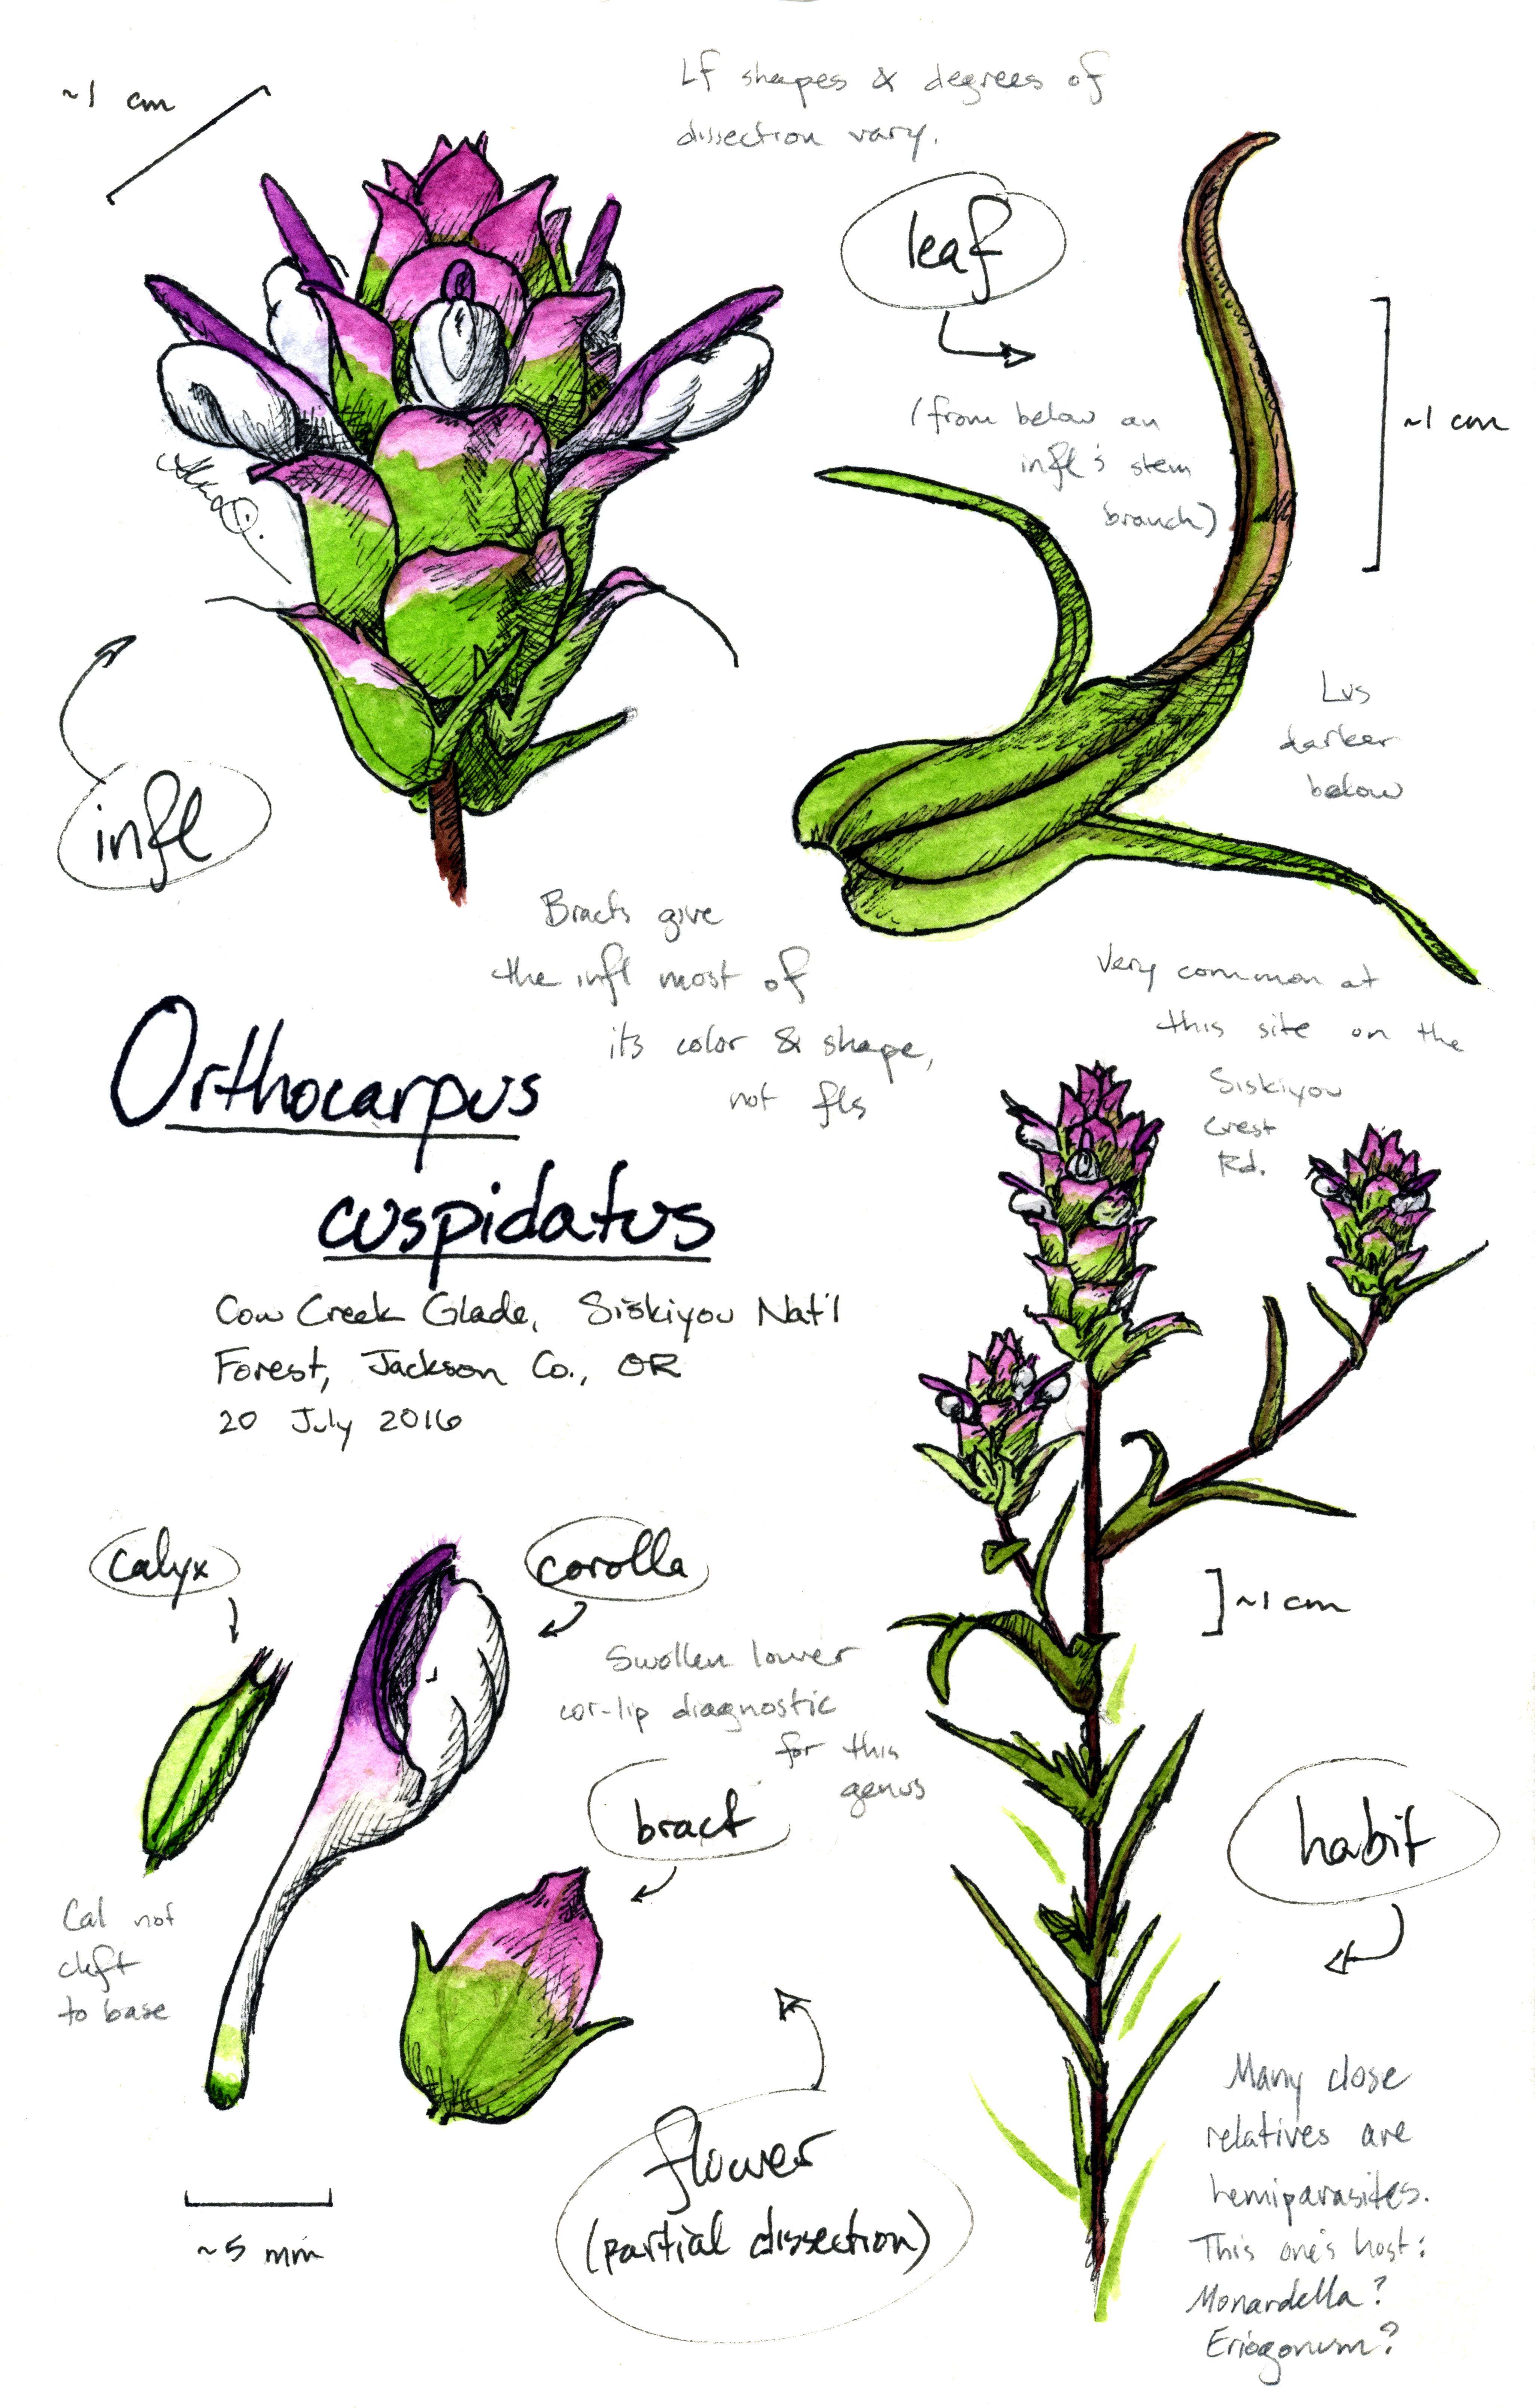 ~1 cm
Lf shapes & degrees of
dissection vary.
leaf
(from below an
infl's stem
branch)
~1 cm
Lvs
darker
below
infl
Bracts give
the infl most of
its color & shape,
not fls
Very common at
this site on the
Siskiyou
Crest
Rd.
Orthocarpus
cuspidatus
Cow Creek Glade, Siskiyou Nat'l
Forest, Jackson Co., OR
20 July 2016
calyx
corolla
Swollen lower
cor-lip diagnostic
for this
genus
~1 cm
bract
habit
Cal not
cleft
to base
flower
(partial dissection)
~5 mm
Many close
relatives are
hemiparasites.
This one's host:
Monardella?
Eriogonum?